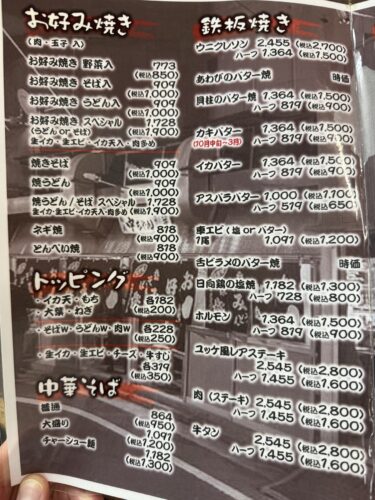 お好み焼き
(肉・玉子 入)
お好み焼き 野菜入 773
(税込850)
お好み焼き そば入 909
(税込1,000)
お好み焼き うどん入 909
(税込1,000)
お好み焼き スペシャル 1,728
(うどん or そば) (税込1,900)
生イカ・生エビ・イカ天入・肉多め
焼きそば 909
(税込1,000)
焼うどん 909
(税込1,000)
焼うどん/そば スペシャル 1,728
生イカ・生エビ・イカ天入・肉多め (税込1,900)
ネギ焼 818
(税込900)
とんぺい焼 818
(税込900)
トッピング
・イカ天・もち 各182
・大葉・ねぎ (税込200)
・そばW・うどんW・肉W 各228
(税込250)
・生イカ・生エビ・チーズ・牛すじ
各319
(税込350)
中華そば
普通 864
(税込950)
大盛り 1,091
(税込1,200)
チャーシュー麺 1,182
(税込1,300)
鉄板焼き
ウニクレソン 2,455 (税込2,700)
ハーフ 1,364 (税込1,500)
あわびのバター焼 時価
貝柱のバター焼 1,364 (税込1,500)
ハーフ 819 (税込900)
カキバター 1,364 (税込1,500)
(10月中旬~3月) ハーフ 819 (税込900)
イカバター 1,364 (税込1,500)
ハーフ 819 (税込900)
アスパラバター 1,000 (税込1,100)
ハーフ 591 (税込650)
車エビ (塩 or バター)
1尾 1,091 (税込1,200)
舌ビラメのバター焼 時価
日向鶏の塩焼 1,182 (税込1,300)
ハーフ 728 (税込800)
ホルモン 1,364 (税込1,500)
ハーフ 819 (税込900)
ユッケ風レアステーキ
2,545 (税込2,800)
ハーフ 1,455 (税込1,600)
肉 (ステーキ) 2,545 (税込2,800)
ハーフ 1,455 (税込1,600)
牛タン 2,545 (税込2,800)
ハーフ 1,455 (税込1,600)